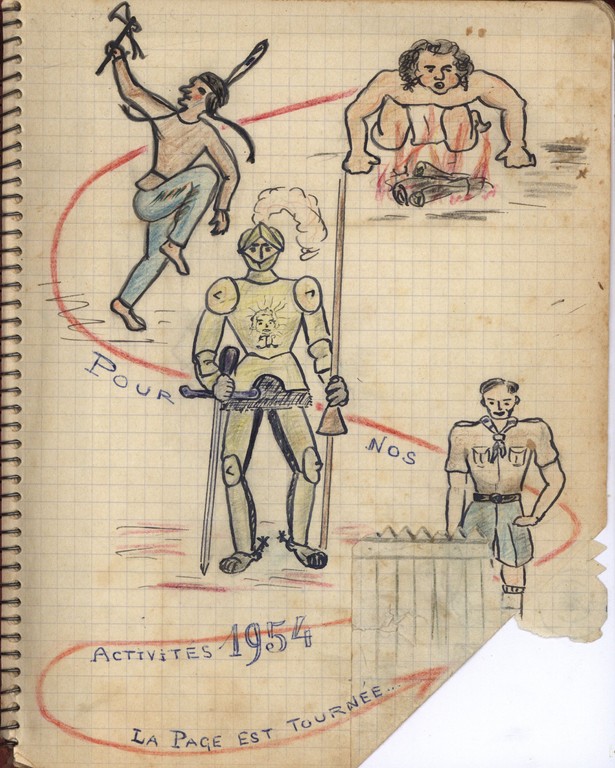 POUR
NOS
ACTIVITÉS 1954
LA PAGE EST TOURNÉE...